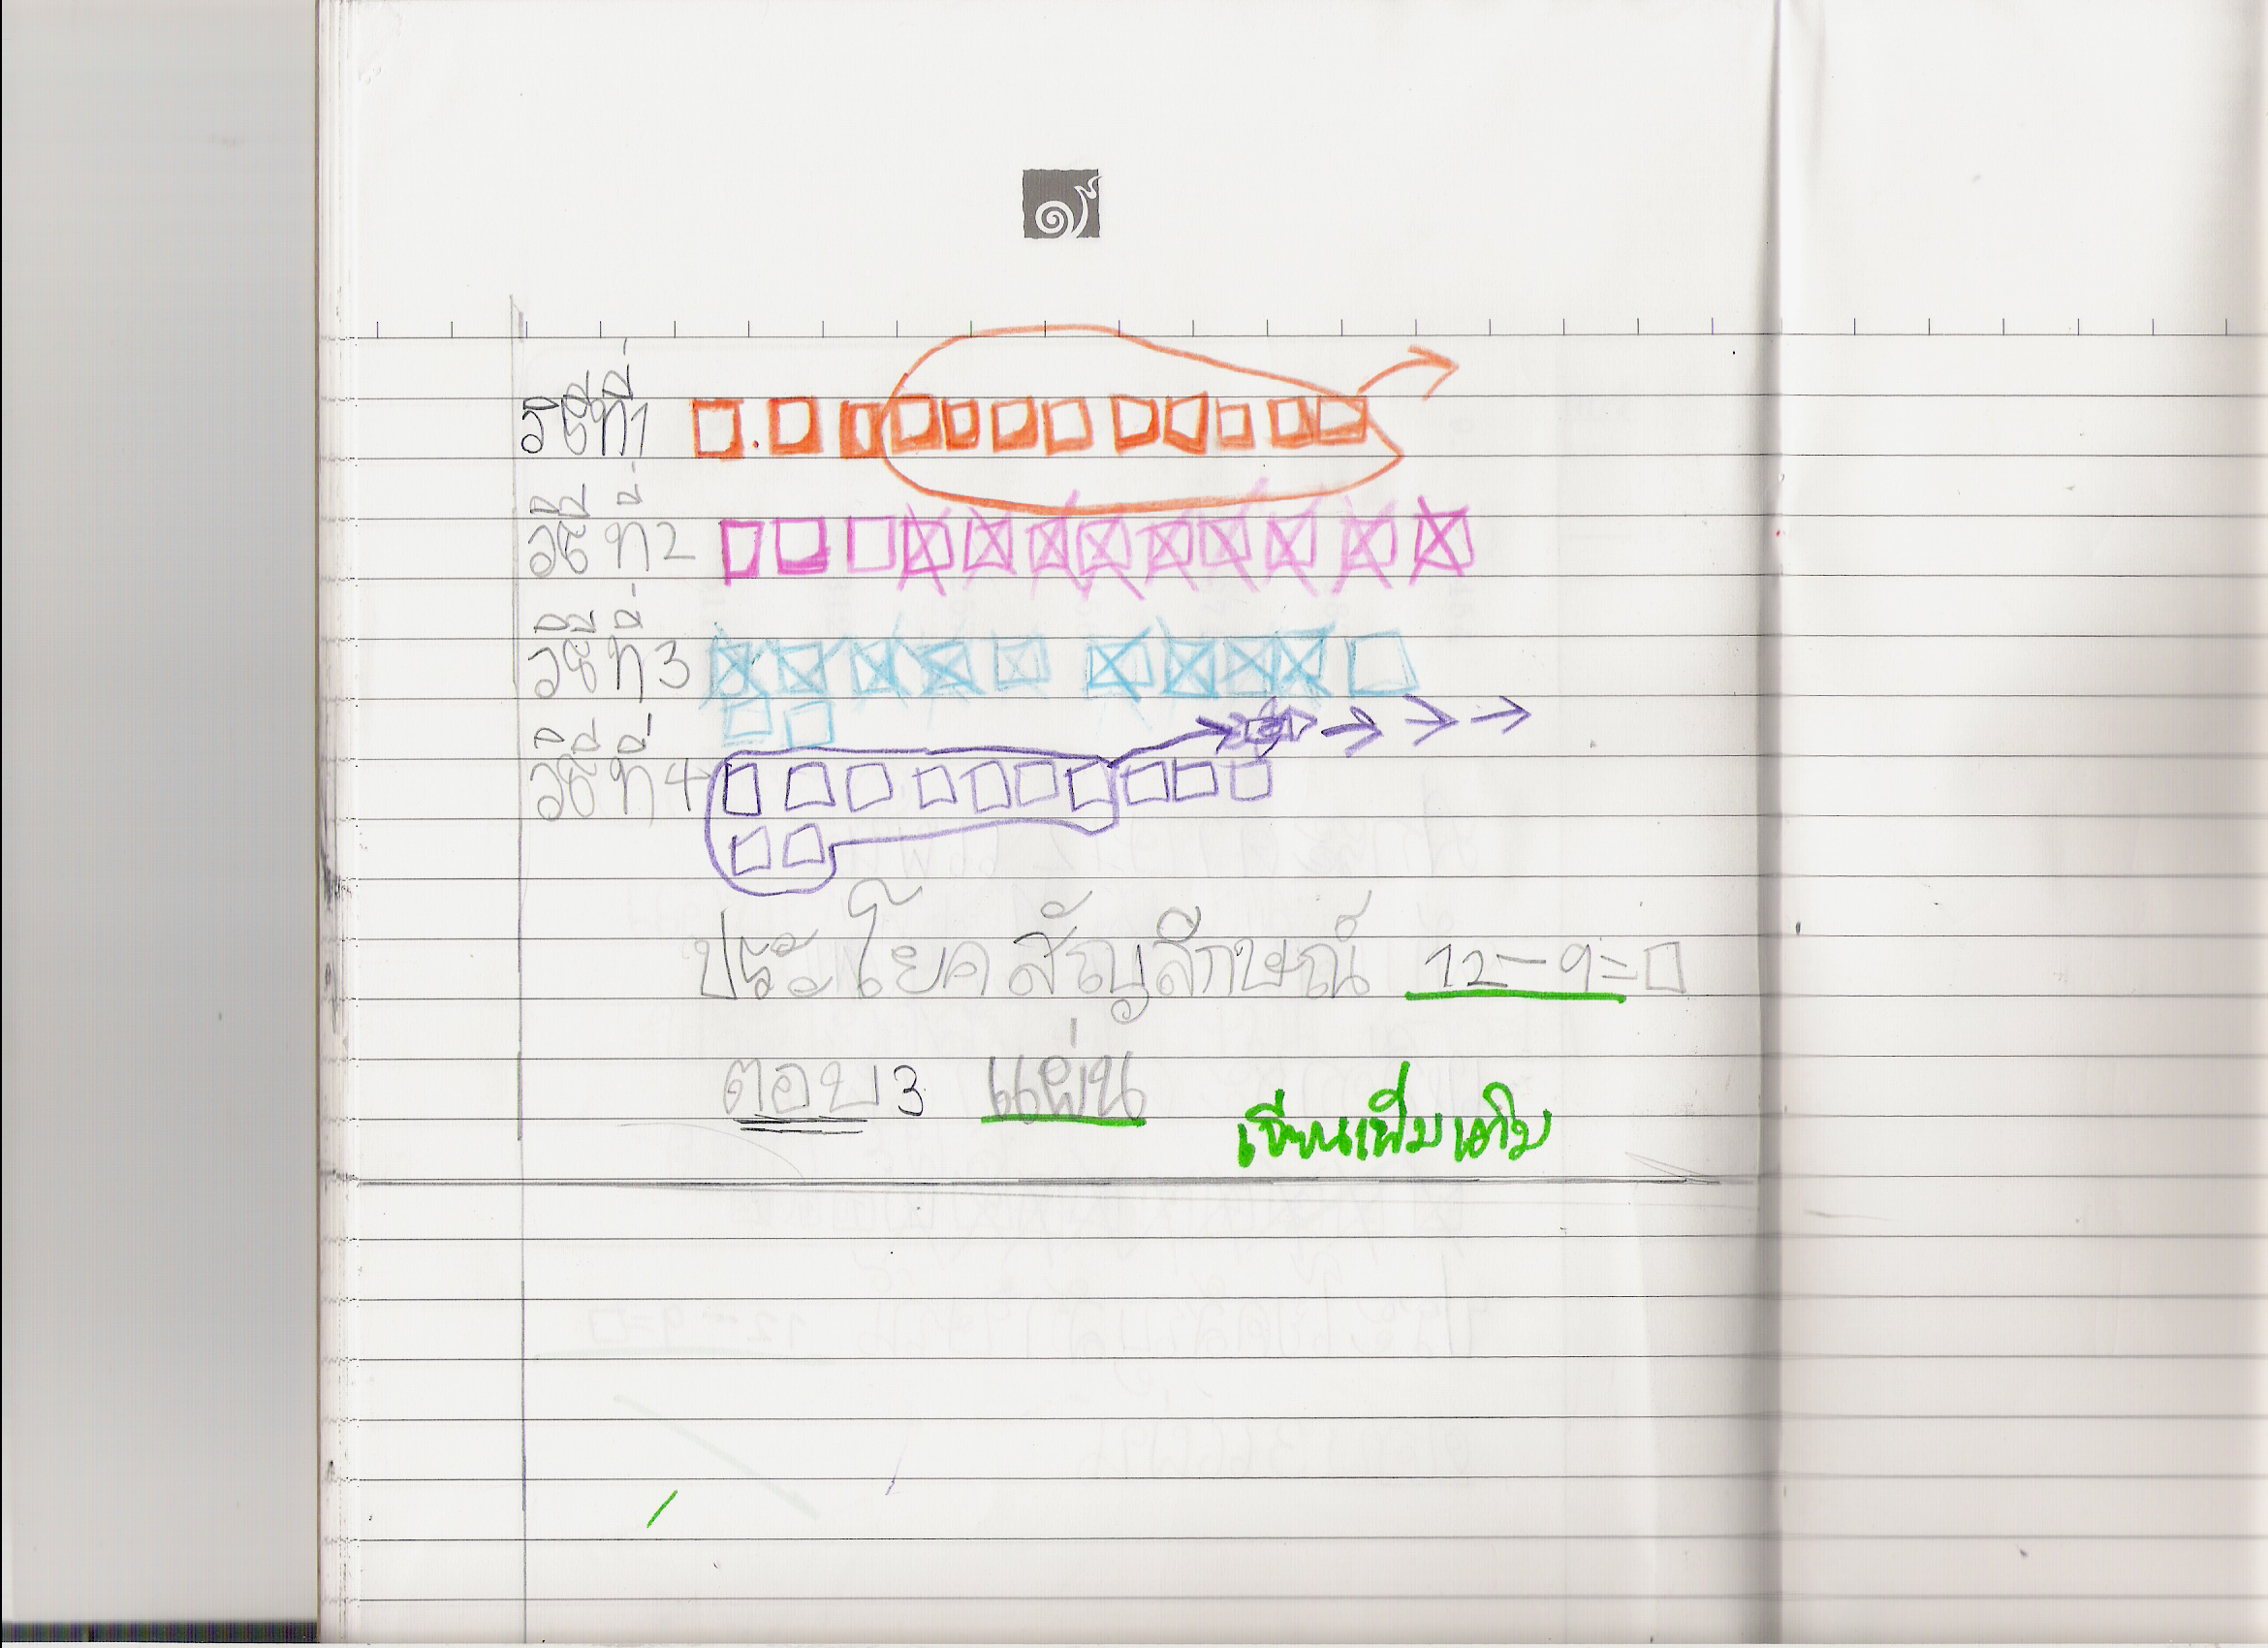 วิธีที่1
วิธีที่2
วิธีที่3
วิธีที่4
ประโยคสัญลักษณ์ 12-9=□
ตอบ 3 แผ่น
เขียนเพิ่มเติม